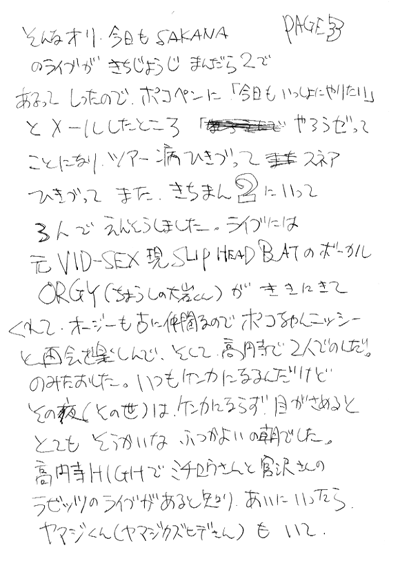 PAGE 33
そんなオリ、今日もSAKANA
のライブが きちじょうじ まんだら2で
あるって しったので、ポコペンに「今日もいっしょにやりたい」
とメールしたところ やろうぜって
ことになり、ツアー病ひきづって スネア
ひきづって また、きちまん2にいって
3人で えんそうしました。ライブには
元VID-SEX 現SLIP HEAD BATのボーカル
ORGY(ちょうしの大岩くん)が ききにきて
くれて、オージーも古い仲間なのでポコちゃんニッシー
と再会を楽しんで、そして、高円寺で2人でのんだ。
のみたおした。いつもケンカになるんだけど
その夜(との世)は、ケンカにならず、目がさめると
とても そうかいな ふつかよいの朝でした。
高円寺HIGHでミチロウさんと宮沢さんの
ラゼッツのライブがあると知り、あいにいったら、
ヤマジくん(ヤマジカズヒデさん)も いて、